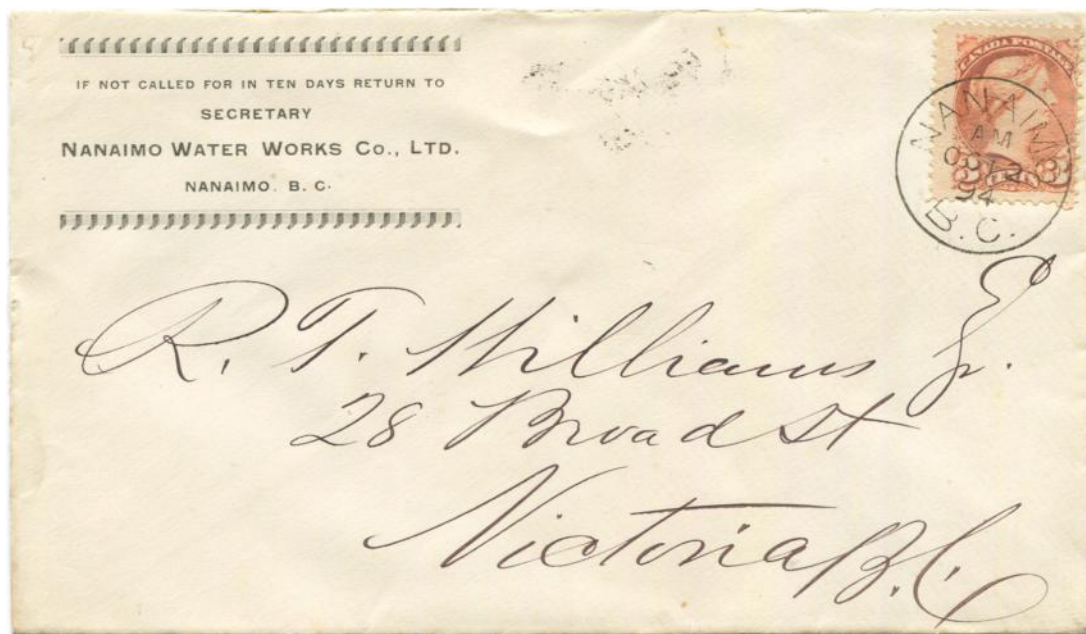 IF NOT CALLED FOR IN TEN DAYS RETURN TO
SECRETARY
NANAIMO WATER WORKS CO., LTD.
NANAIMO. B. C.
CANADA POSTAGE
3 3
NANAIMO
AM
OCT 2
94
B.C.
R. T. Williams
28 Broad St
Victoria B.C.